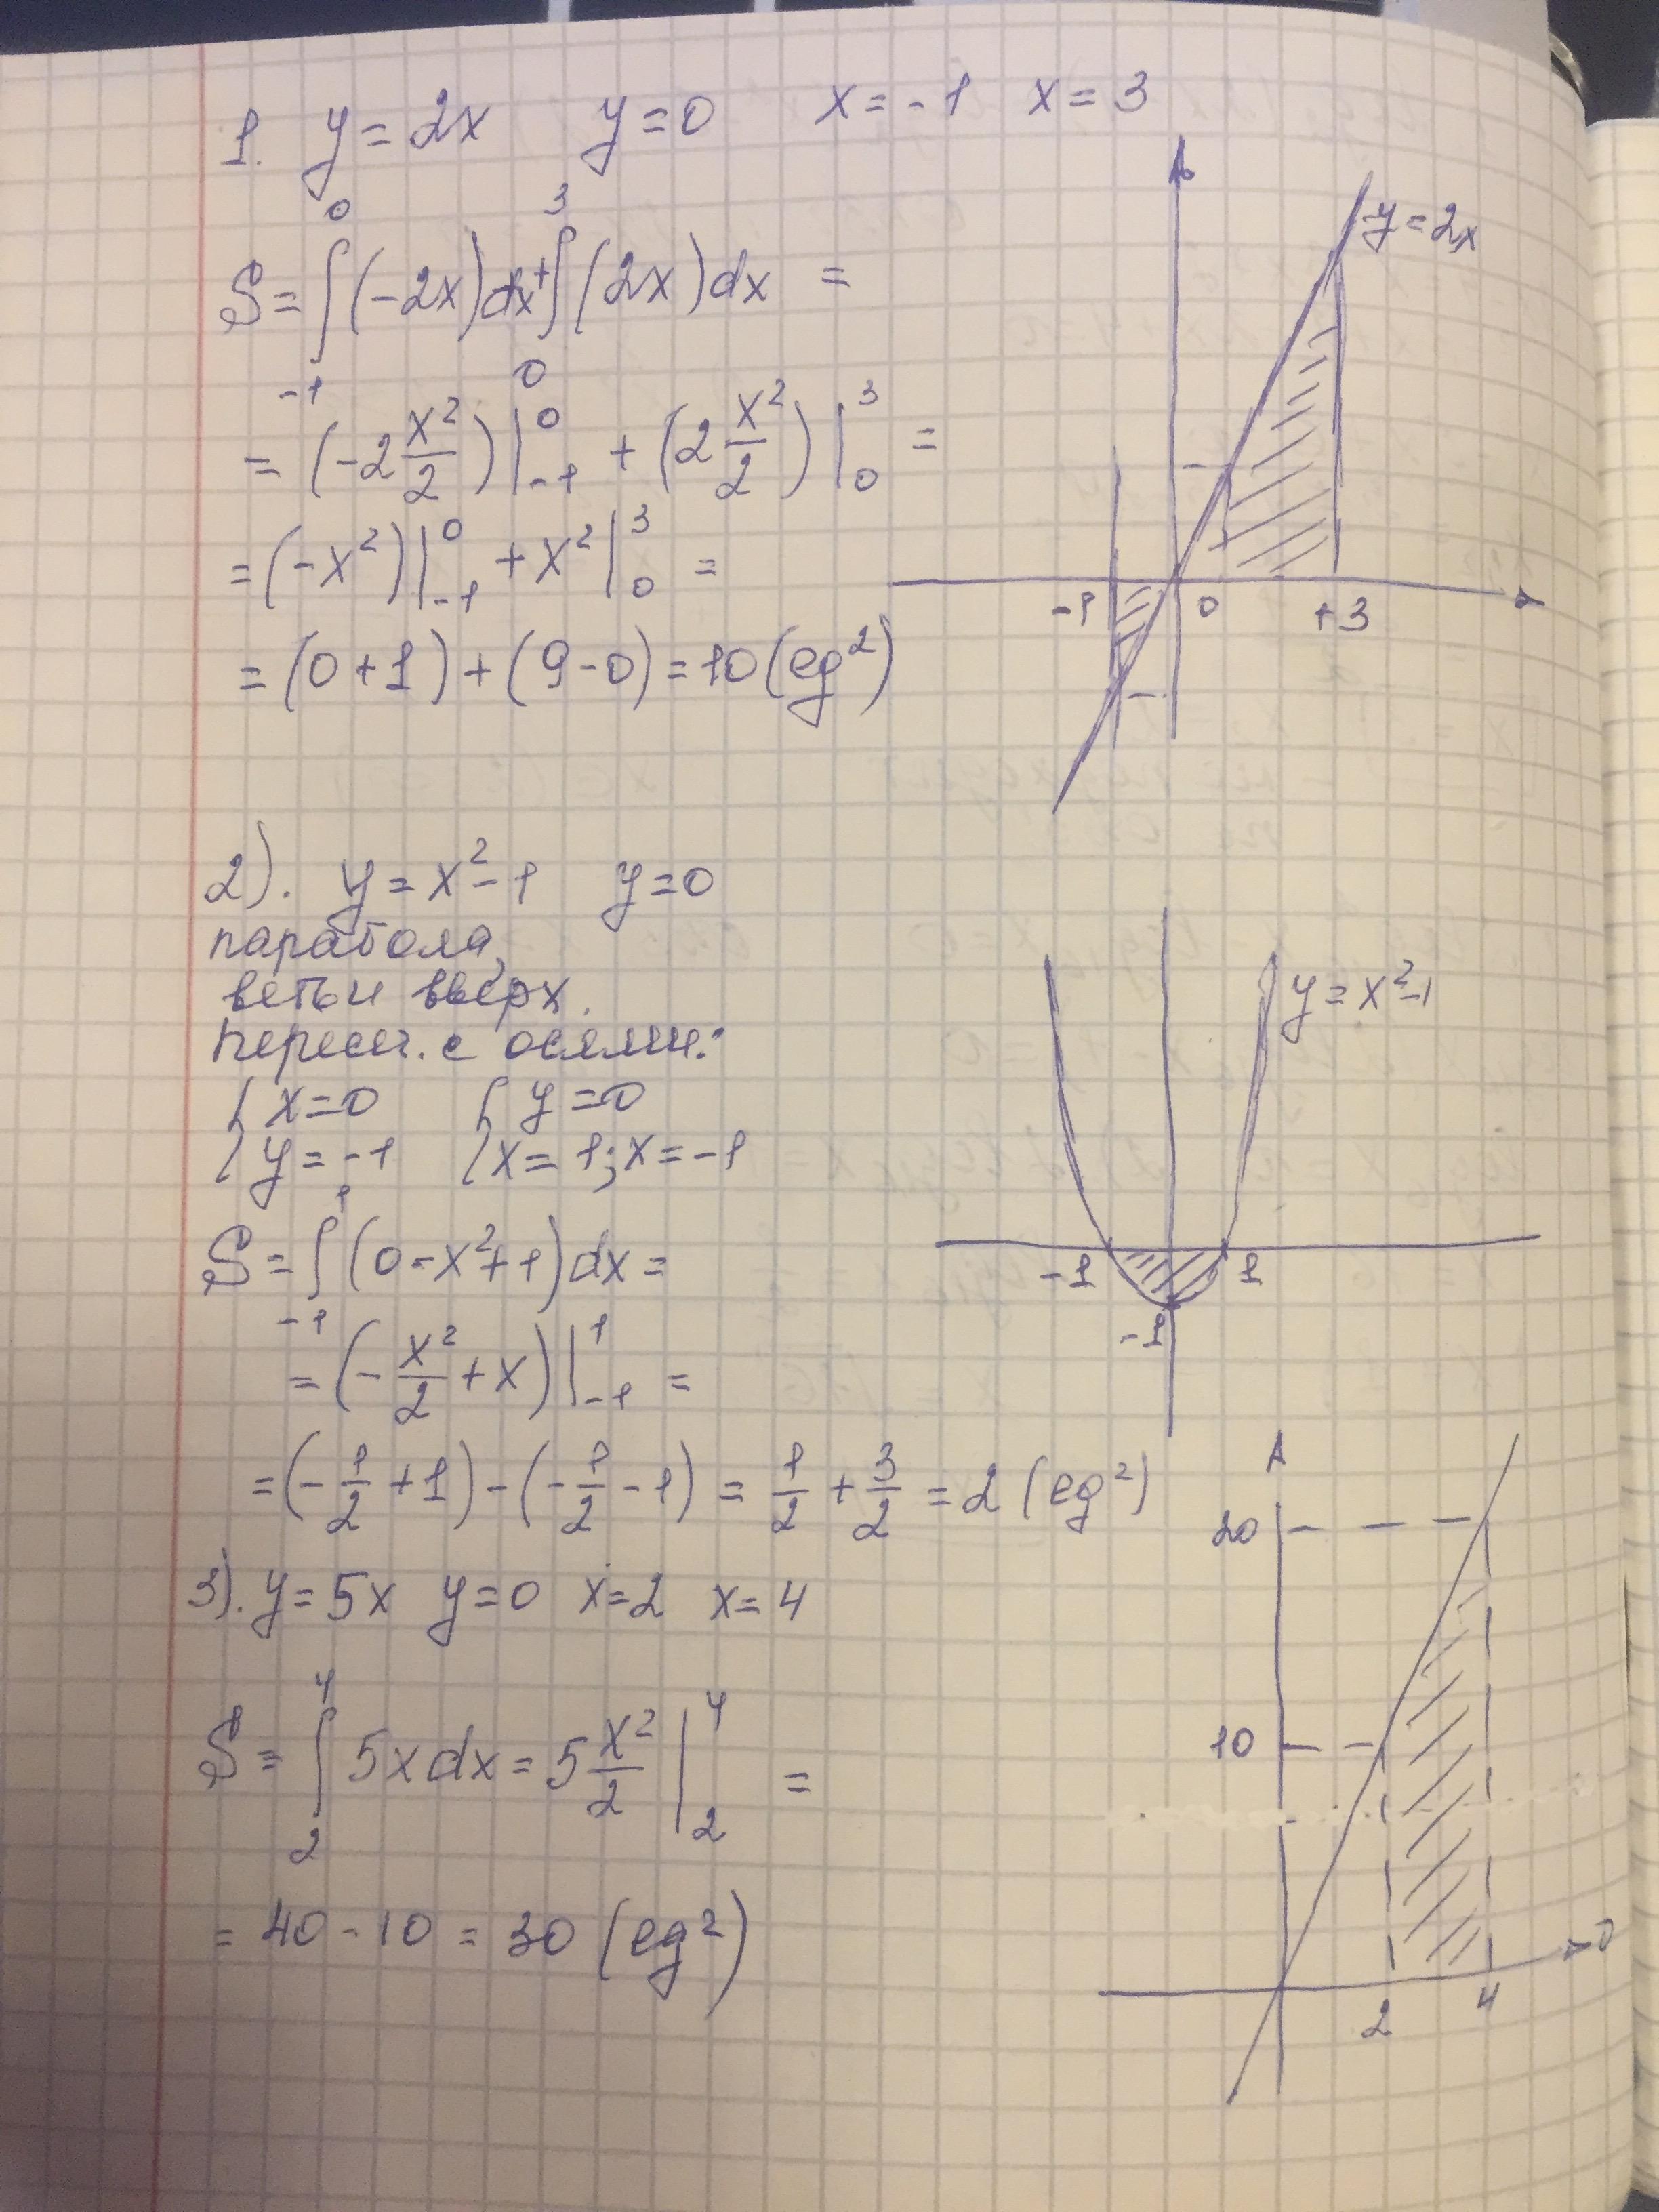 1. y = 2x y = 0 x = -1 x = 3
S = ∫₋₁⁰ (-2x)dx + ∫₀³ (2x)dx =
= (-2 x²/2)|₋₁⁰ + (2 x²/2)|₀³ =
= (-x²)|₋₁⁰ + x²|₀³ =
= (0+1) + (9-0) = 10 (eg²)
y = 2x
-1 0 +3
2). y = x² - 1 y = 0
парабола,
ветви вверх.
Пересеч. с осями:
{ x = 0 { y = 0
{ y = -1 { x = 1; x = -1
S = ∫₋₁¹ (0 - x² + 1)dx =
= (- x²/2 + x)|₋₁¹ =
= (- 1/2 + 1) - (- 1/2 - 1) = 1/2 + 3/2 = 2 (eg²)
y = x² - 1
-1 1
-1
3). y = 5x y = 0 x = 2 x = 4
S = ∫₂⁴ 5x dx = 5 x²/2 |₂⁴ =
= 40 - 10 = 30 (eg²)
20
10
2 4